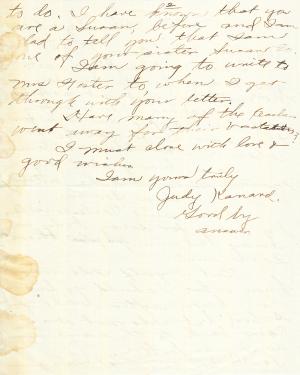 to do. I have know that you
are a Susan, before and I'm
glad to tell you that I am
one of your sister Susan to.
I am going to write to
Mrs Foster to, when I get
through with your letter.
Have many of the teachers
went away for their vacation.
I must close with love &
good wishes
I am yours truly
Judy Kanard.
Good by
answer